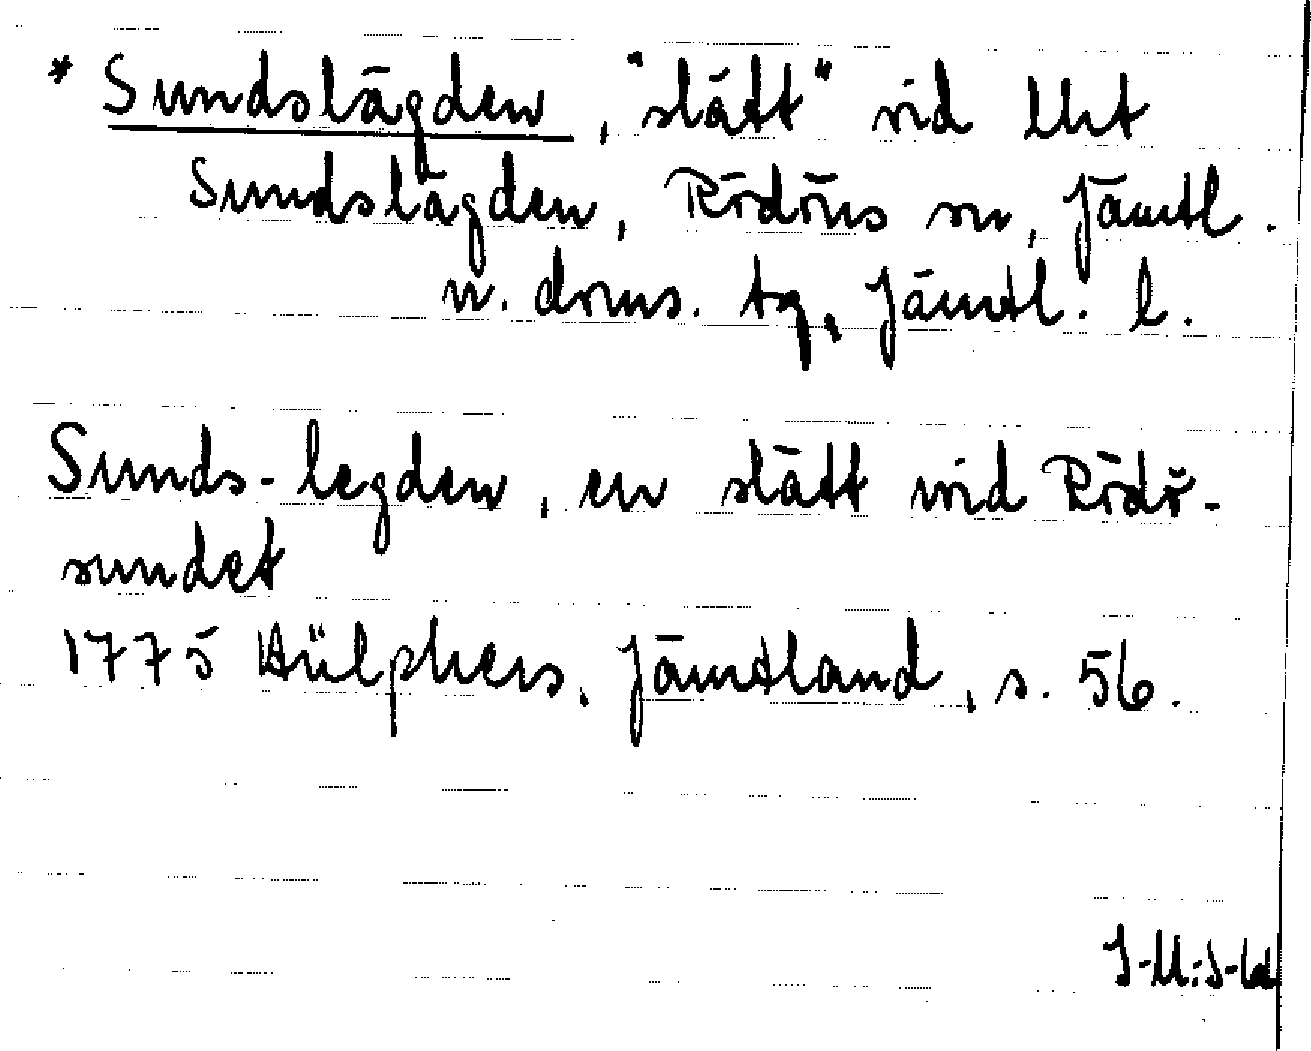 * Sundslägden, "slätt" vid lht
Sundslägden, Rödöns sn, Jämtl.
n. doms. tg, Jämtl. l.
Sunds-legden, en slätt wid Rödö-
sundet
1775 Hülphers, Jämtland, s. 56.